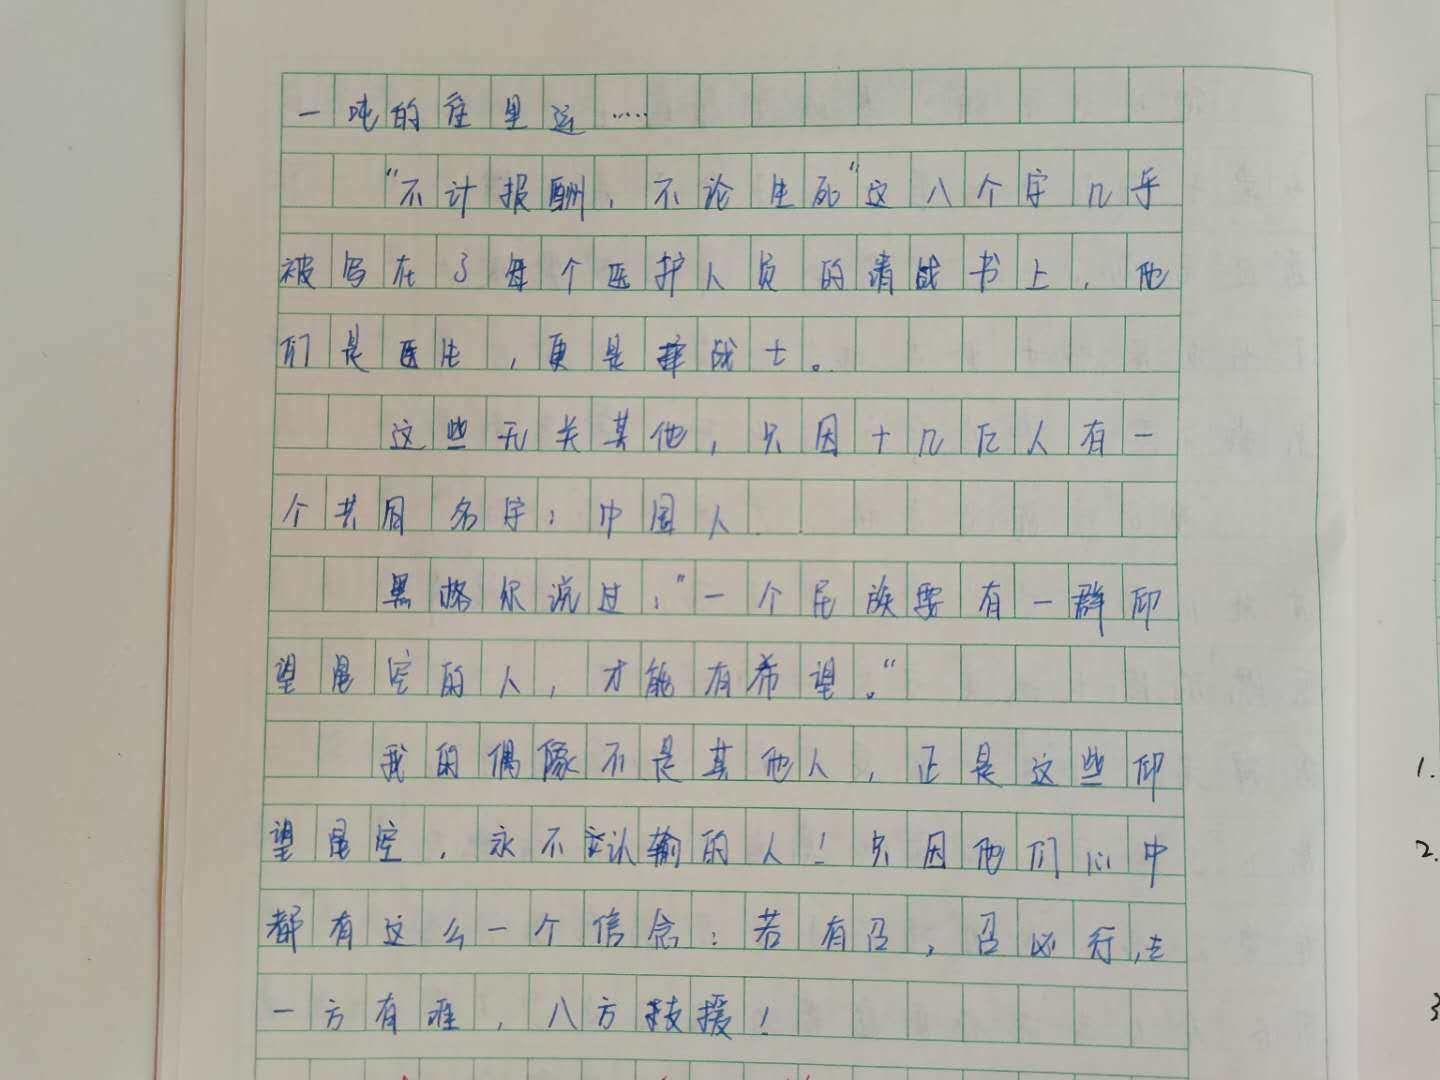 一吨的往里运……
“不计报酬，不论生死”这八个字几乎
被写在了每个医护人员的请战书上，他
们是医生，更是战士。
这些无关其他，只因十几亿人有一
个共同名字：中国人
黑格尔说过：“一个民族要有一群仰
望星空的人，才能有希望。“
我的偶像不是其他人，正是这些仰
望星空，永不认输的人！只因他们心中
都有这么一个信念：若有召，召必行，
一方有难，八方支援！
1.
2.
3